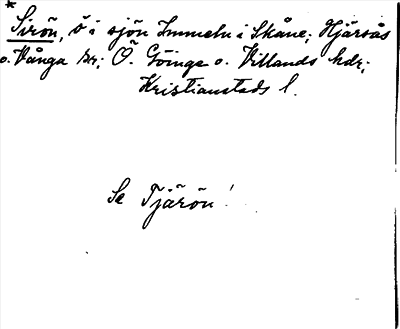 * Sirön, ö i sjön Immeln i Skåne; Hjärsås
o. Vånga snr; Ö. Göinge o. Villands hdr;
Kristianstads l.
Se Tjärön!